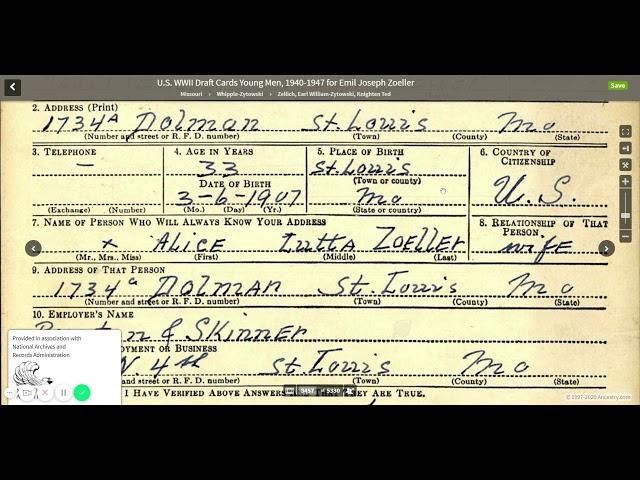 U.S. WWII Draft Cards Young Men, 1940-1947 for Emil Joseph Zoeller
Missouri › Whipple-Zytowski › Zellich, Earl William-Zytowski, Knighten Ted
Save
2. ADDRESS (Print)
1734A Dolman St. Louis Mo
(Number and street or R. F. D. number) (Town) (County) (State)
3. TELEPHONE 4. AGE IN YEARS 5. PLACE OF BIRTH 6. COUNTRY OF
CITIZENSHIP
— 33 St. Louis
DATE OF BIRTH (Town or county)
3-6-1907 Mo U.S.
(Exchange) (Number) (Mo.) (Day) (Yr.) (State or country)
7. NAME OF PERSON WHO WILL ALWAYS KNOW YOUR ADDRESS 8. RELATIONSHIP OF THAT
PERSON
x ALICE Lutta ZOELLER wife
(Mr., Mrs., Miss) (First) (Middle) (Last)
9. ADDRESS OF THAT PERSON
1734a Dolman St. Louis Mo
(Number and street or R. F. D. number) (Town) (County) (State)
10. EMPLOYER'S NAME
& Skinner
OYMENT OR BUSINESS
N. 4th St. Louis Mo
and street or R. F. D. number) (Town) (County) (State)
I HAVE VERIFIED ABOVE ANSWERS EY ARE TRUE.
Provided in association with
National Archives and
Records Administration
of 5330
© 1997-2020 Ancestry.com